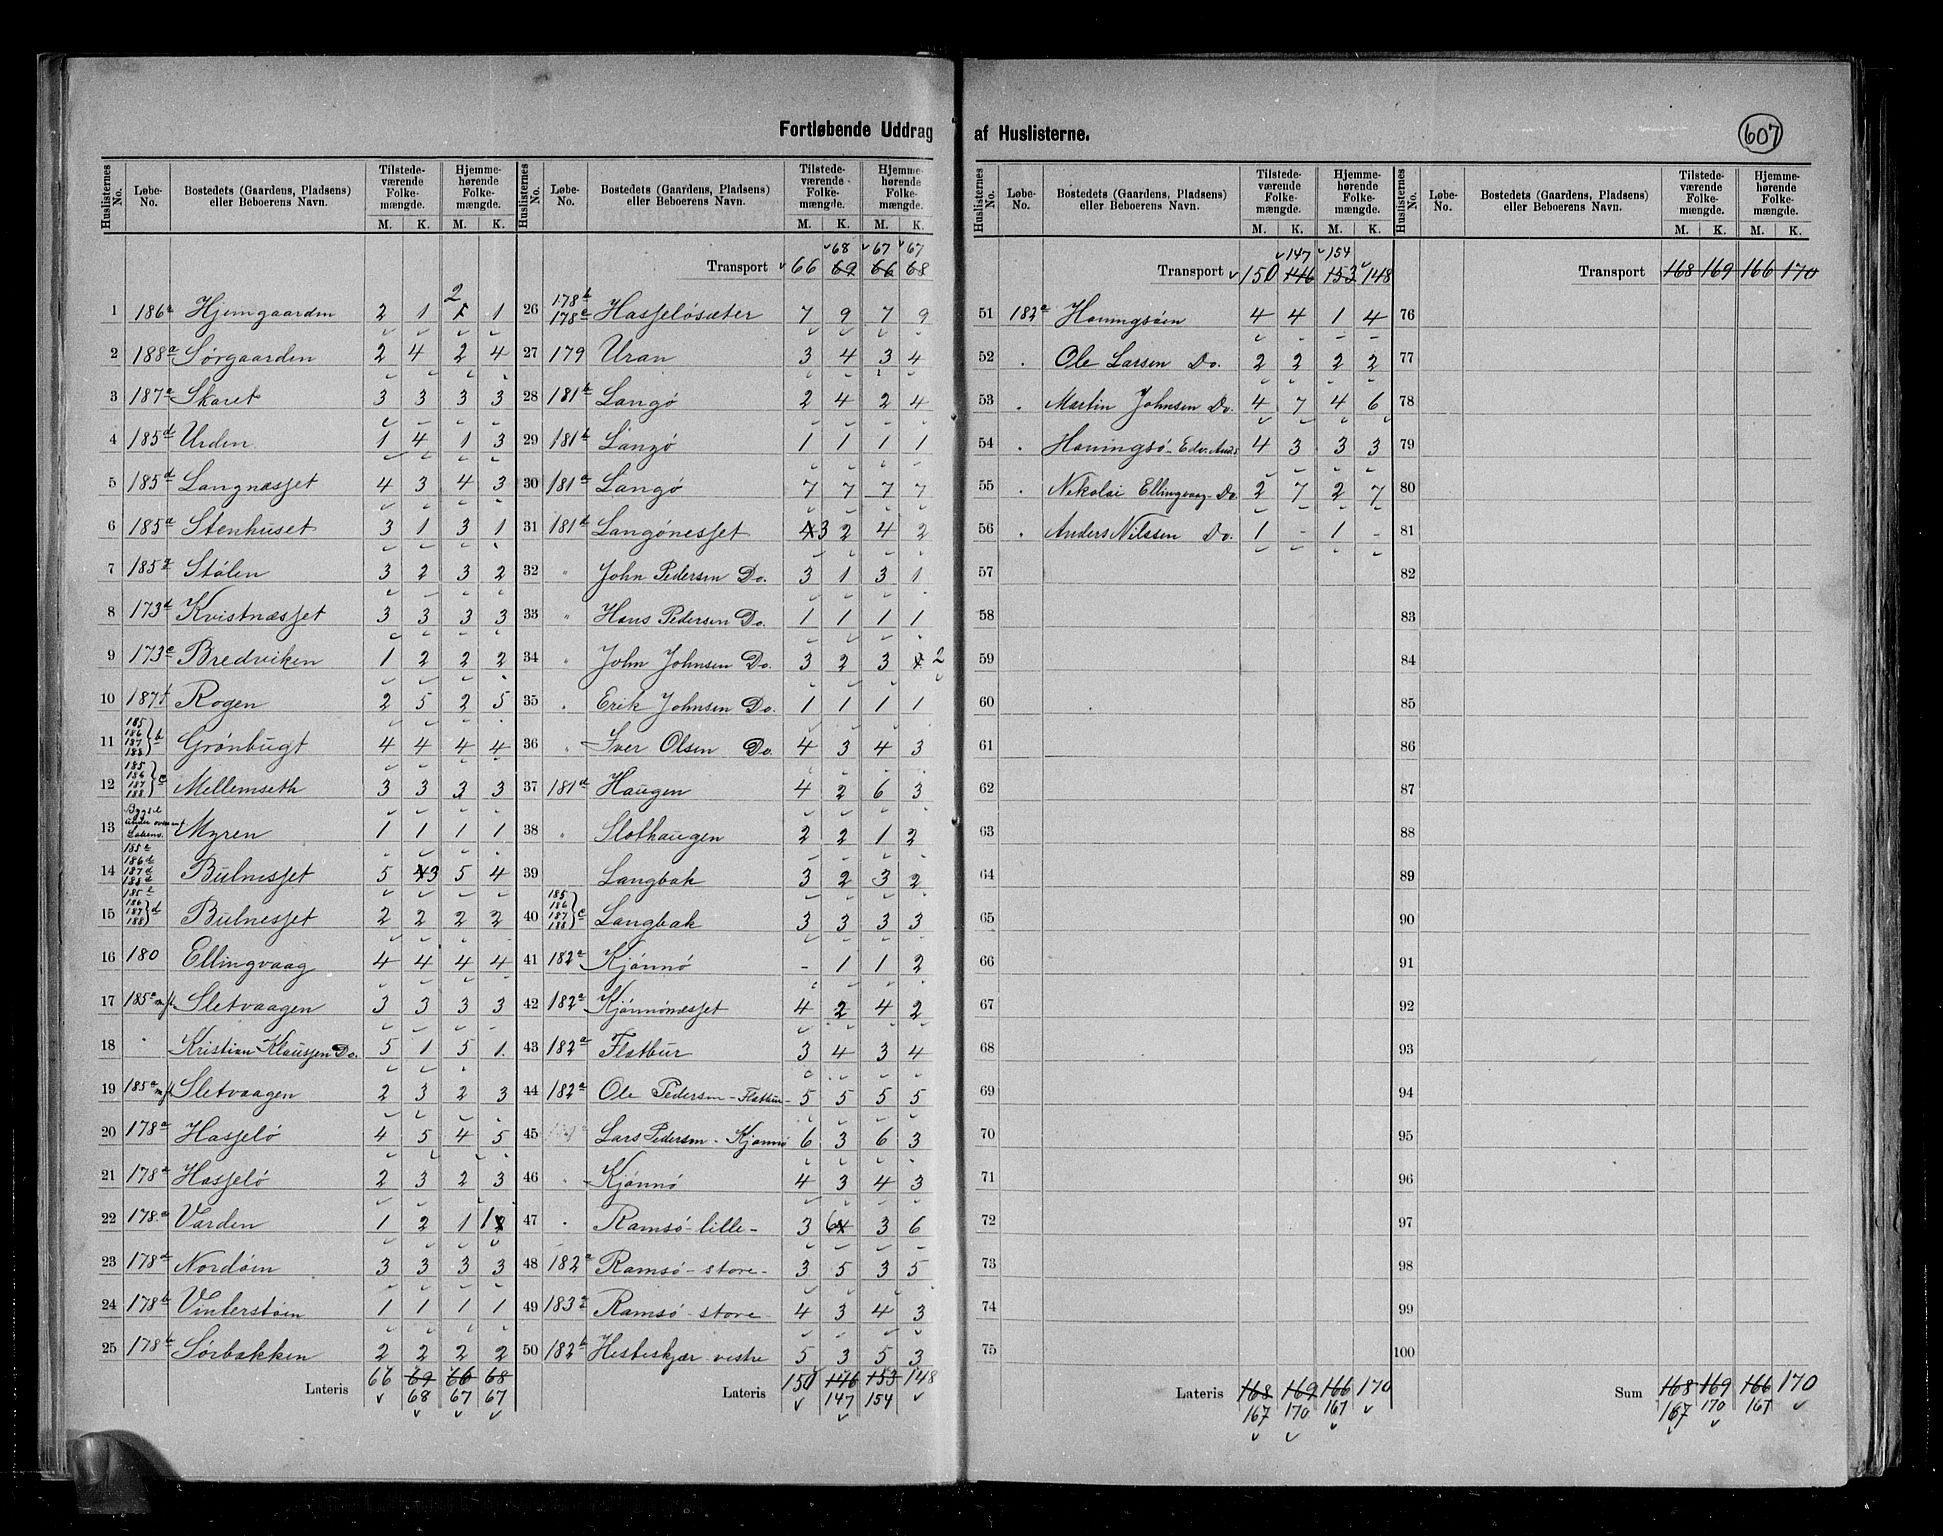 Fortløbende Uddrag af Huslisterne.
607
Huslisternes No. Løbe-No. Bostedets (Gaardens, Pladsens) eller Beboerens Navn. Tilstede-værende Folke-mængde. M. K. Hjemme-hørende Folke-mængde. M. K.
1 186a Hjemgaarden 2 1 2 1
2 188a Sørgaarden 2 4 2 4
3 187a Skaret 3 3 3 3
4 185d Urden 1 4 1 3
5 185d Langnæsset 4 3 4 3
6 185a Stenhuset 3 1 3 1
7 185a Stølen 3 2 3 2
8 173d Kvistnæsset 3 3 3 3
9 173c Bredviken 1 2 2 2
10 187f Rogen 2 5 2 5
11 185 186 187 188 b Grønbugt 4 4 4 4
12 185 186 187 188 c Mellemseth 3 3 3 3
13 Myren 1 1 1 1
14 185a 186d 187d 188d Bulnesset 5 3 5 4
15 185 186 187 188 d Bulnesset 2 2 2 2
16 180 Ellingvaag 4 4 4 4
17 185a Sletvaagen 3 3 3 3
18 Kristian Klaussen Do. 5 1 5 1
19 185a Sletvaagen 2 3 2 3
20 178a Hasselø 4 5 4 5
21 178a Hasselø 2 3 2 3
22 178a Varden 1 2 1 1
23 178d Nordøin 3 3 3 3
24 178b Vinterstøin 1 1 1 1
25 178b Sørbakken 2 2 2 2
Lateris 66 69 66 68
68 67 67
68 67 67
Transport 66 69 66 68
26 178b 178c Hasseløsæter 7 9 7 9
27 179 Uran 3 4 3 4
28 181b Langø 2 4 2 4
29 181b Langø 1 1 1 1
30 181a Langø 7 7 7 7
31 181d Langønesset 4 3 2 4 2
32 " John Pedersen Do. 3 1 3 1
33 " Hans Pedersen Do. 1 1 1 1
34 " John Johnsen Do. 3 2 3 2
35 " Erik Johnsen Do. 1 1 1 1
36 " Iver Olsen Do. 4 3 4 3
37 181d Haugen 4 2 6 3
38 " Slothaugen 2 2 1 2
39 Langbak 3 2 3 2
40 185 186 187 188 c Langbak 3 3 3 3
41 182a Kjønnø - 1 1 2
42 182a Kjønnønesset 4 2 4 2
43 182a Flatbur 3 4 3 4
44 182a Ole Pedersen - Flatbur - 5 5 5 5
45 Lars Pedersen - Kjønnø 6 3 6 3
46 " Kjønnø 4 3 4 3
47 " Ramsø - lille - 3 6 3 6
48 182a Ramsø - store - 3 5 3 5
49 183a Ramsø - store 4 3 4 3
50 182b Hesteskjær vestre 5 3 5 3
Lateris 150 146 153 148
147 154
147 154
Transport 150 146 153 148
51 182a Honningsøen 4 4 1 4
52 " Ole Larsen Do. 2 2 2 2
53 " Martin Johnsen Do. 4 7 4 6
54 " Honningsø - Edv. Ands 4 3 3 3
55 " Nikolai Ellingvaag - Do. 2 7 2 7
56 " Anders Nilssen Do. 1 - 1 -
57
58
59
60
61
62
63
64
65
66
67
68
69
70
71
72
73
74
75
Lateris 168 169 166 170
167 170 167
Transport 168 169 166 170
76
77
78
79
80
81
82
83
84
85
86
87
88
89
90
91
92
93
94
95
96
97
98
99
100
Sum 168 169 166 170
167 170 167